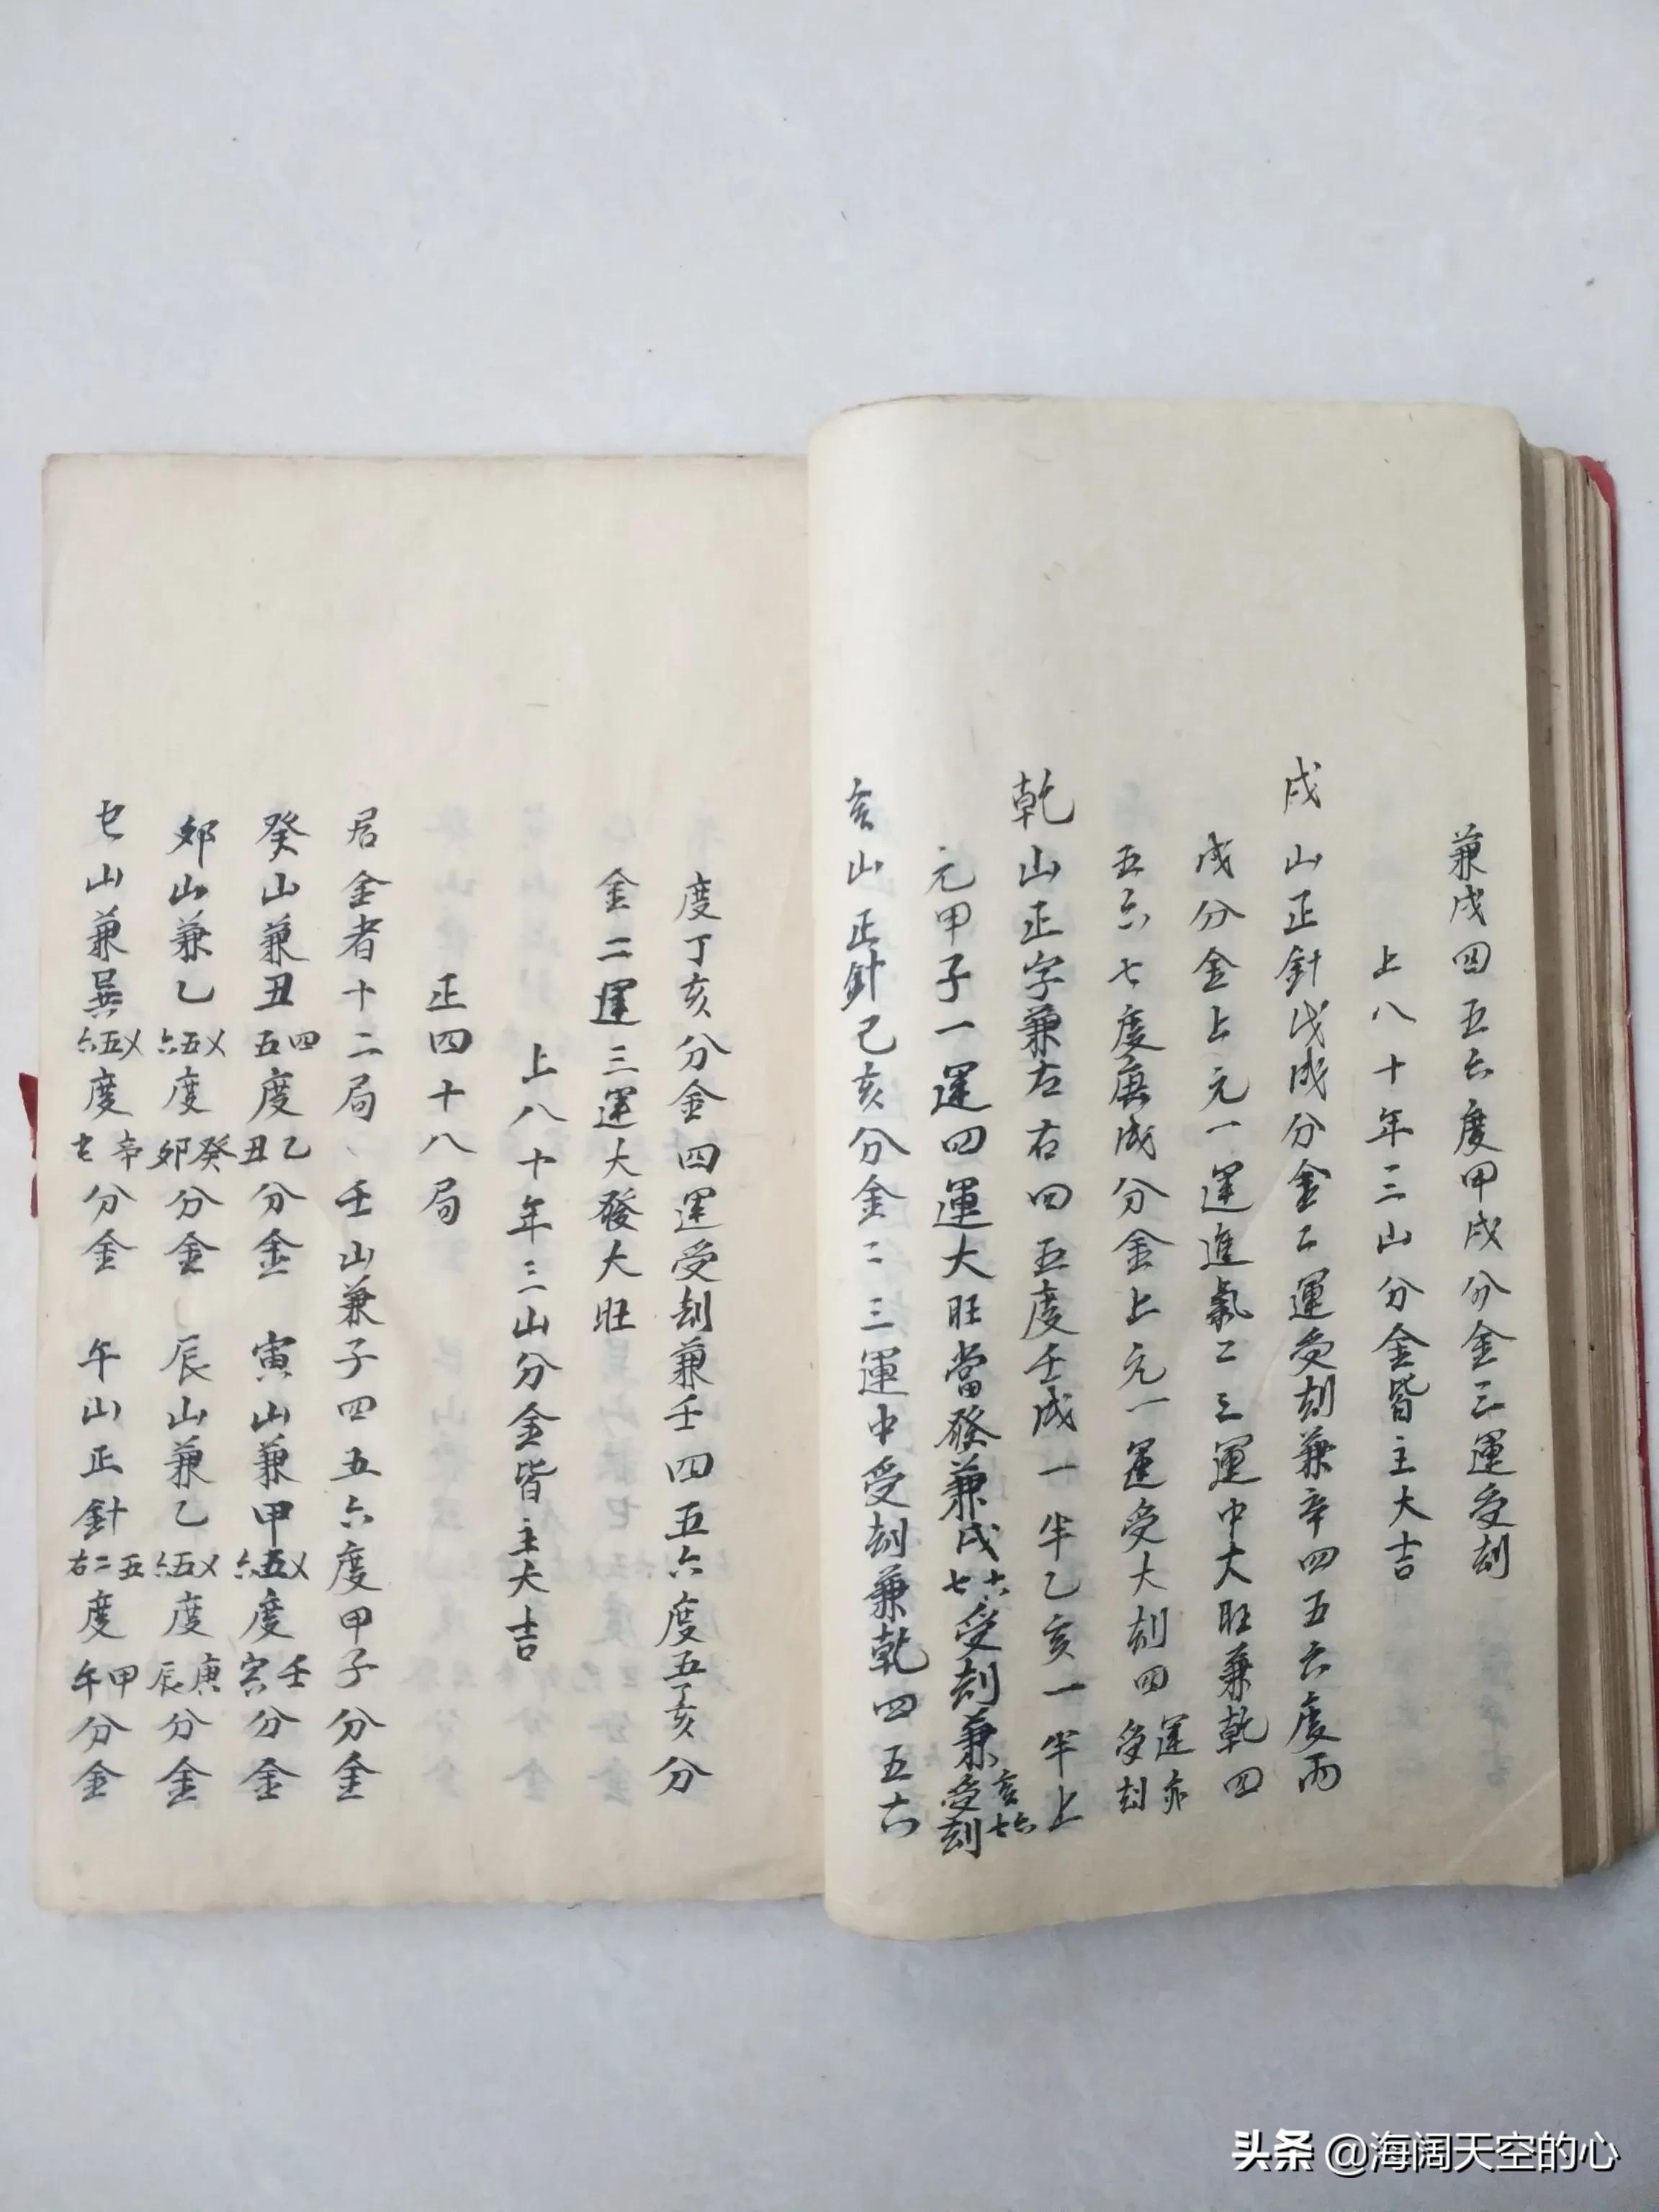 兼戌四五六度甲戌分金三運受刼
上八十年三山分金皆主大吉
戌山正針戊戌分金二運受刼兼辛四五六度丙
戌分金上元一運進氣二三運中大旺兼乾四
五六七度庚戌分金上元一運受大刼四運亦受刼
乾山正字兼左右四五度壬戌一半乙亥一半上
元甲子一運四運大旺當發兼戌六七受刼兼亥六七受刼
亥山正針己亥分金二三運中受刼兼乾四五六
度丁亥分金四運受刼兼壬四五六度五亥分
金二運三運大發大旺
上八十年三山分金皆主大吉
正四十八局
居金者十二局壬山兼子四五六度甲子分金
癸山兼丑四五度乙丑分金 寅山兼甲〤五六度壬寅分金
卯山兼乙〤五六度癸卯分金 辰山兼乙〤五六度庚辰分金
巳山兼巽〤五六度辛巳分金 午山正針五二右度甲午分金
头条 @海阔天空的心